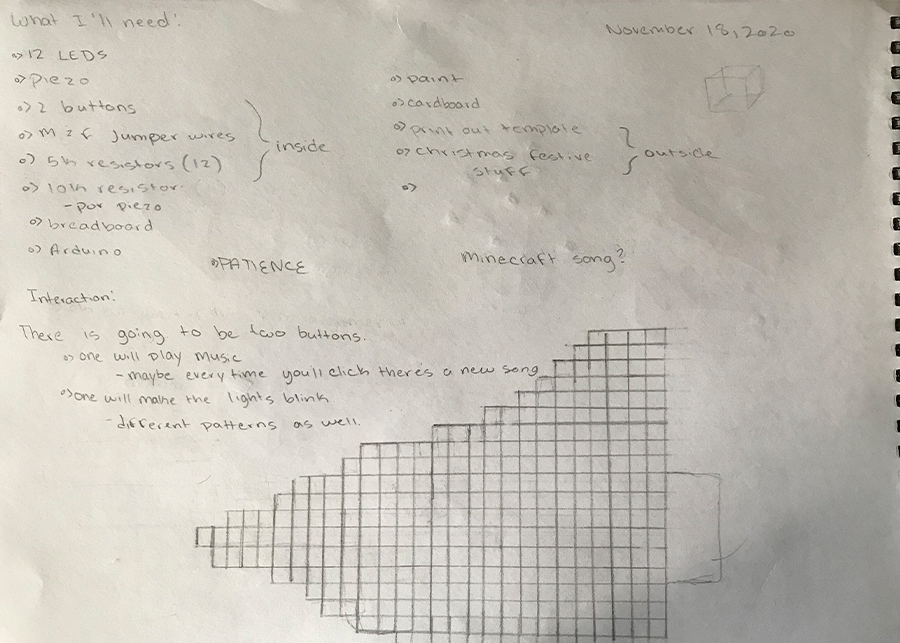 What I'll need:
November 18, 2020
12 LEDS
Piezo
2 buttons
M 2 F Jumper wires
5k resistors (12)
inside
10k resistor
- por piezo
breadboard
Arduino
paint
cardboard
print out template
christmas festive
stuff
outside
PATIENCE
Minecraft song?
Interaction:
There is going to be two buttons.
one will play music
- maybe everytime you'll click there's a new song
one will make the lights blink
- different patterns as well.